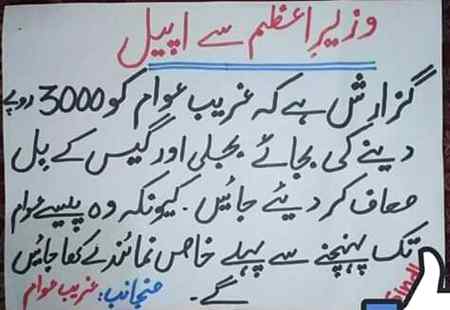 وزیرِاعظم سے اپیل
گزارش ہے کہ غریب عوام کو 3000 روپے
دینے کی بجائے بجلی اور گیس کے بل
معاف کر دیئے جائیں۔ کیونکہ وہ پیسے عوام
تک پہنچنے سے پہلے خاص نمائندے کھا جائیں
گے۔ منجانب: غریب عوام
Sindh